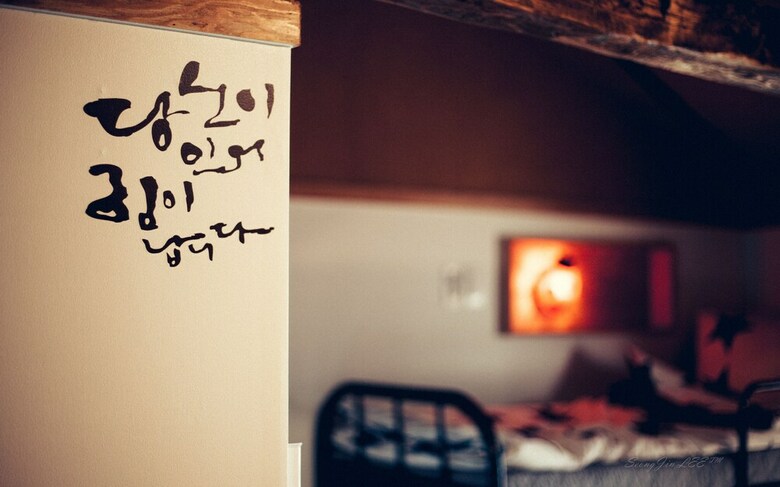 당신이
있어
힘이
납니다
SeungJin LEE™